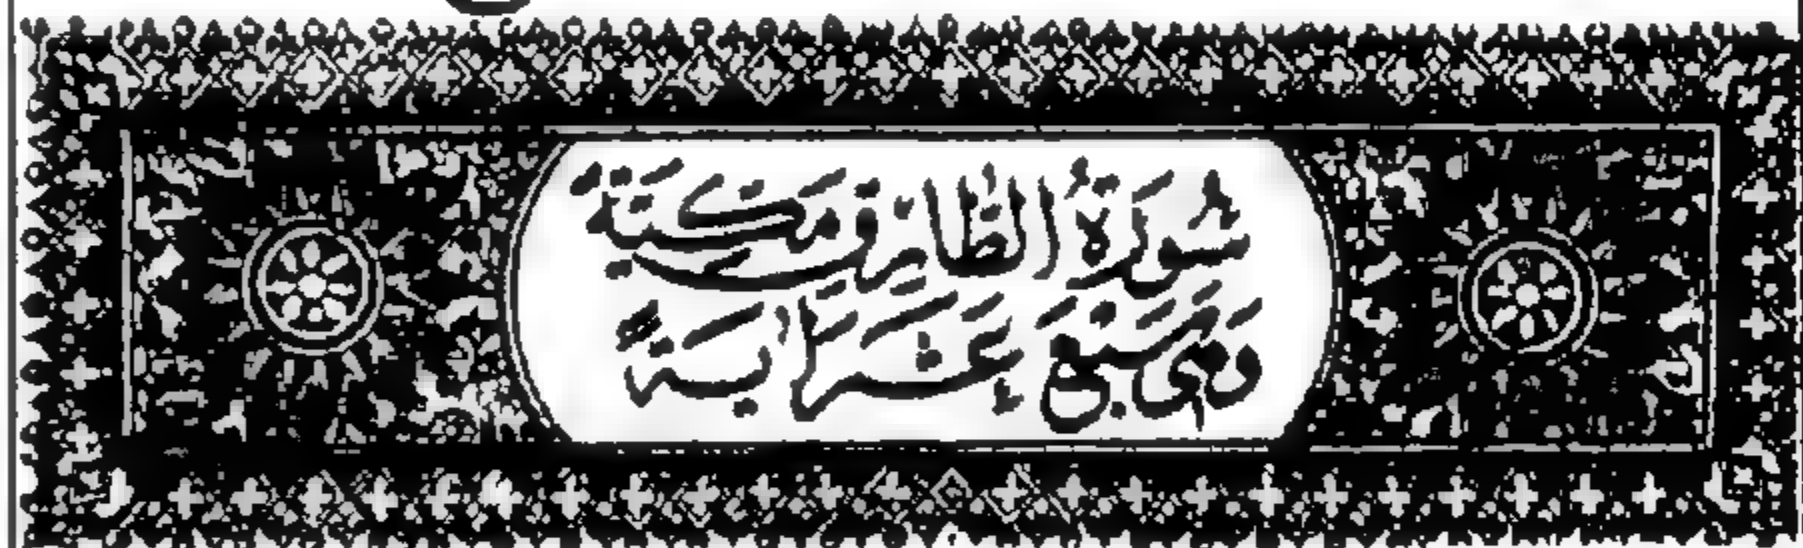 سُورَةُ الطَّارِقِ مَكِّيَّةٌ
وَهِيَ سَبْعَ عَشَرَةَ اٰيَةً